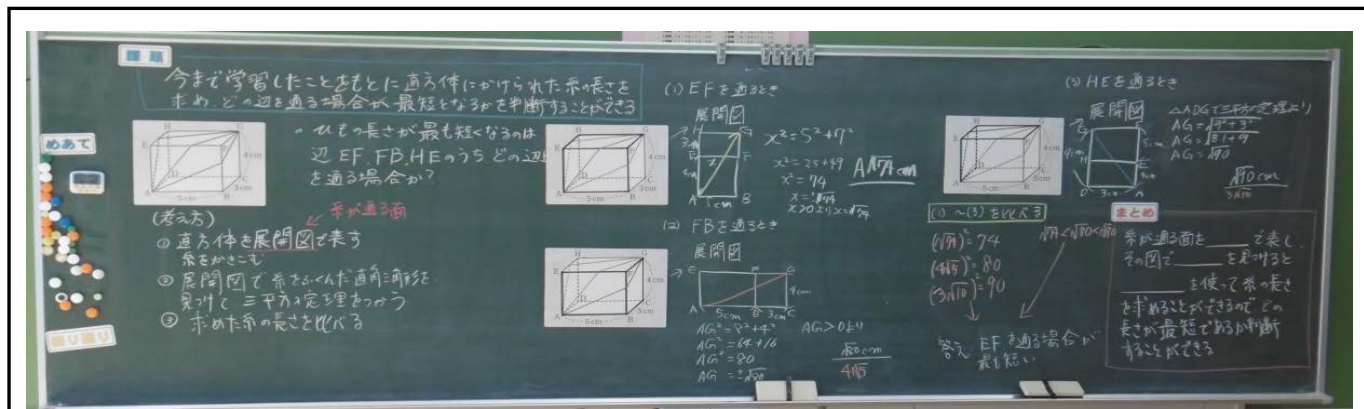 課題
今まで学習したことをもとに直方体にかけられた糸の長さを
求め、どの辺を通る場合が、最短となるかを判断することができる
めあて
H
G
E
F
D
C
A
B
4cm
3cm
5cm
ひもの長さが最も短くなるのは
辺EF,FB,HEのうちどの辺
を通る場合か?
(考え方)
糸が通る面
① 直方体を展開図で表す
糸をかきこむ
② 展開図で糸をふくんだ直角三角形を
見つけて三平方の定理をつかう
③ 求めた糸の長さを比べる
振り返り
H
G
E
F
D
C
A
B
4cm
3cm
5cm
(1) EFを通るとき
展開図
H
G
3cm
E
F
4cm
x
A
5cm
B
x²=5²+7²
x²=25+49
x²=74
x=±√74
x>0よりx=√74
A √74cm
H
G
E
F
D
C
A
B
4cm
3cm
5cm
(2) FBを通るとき
展開図
E
F
G
4cm
A
5cm
B
3cm
C
AG²=8²+4²
AG²=64+16
AG²=80
AG=±√80
AG>0より
√80cm
4√5
(3) HEを通るとき
H
G
E
F
D
C
A
B
4cm
3cm
5cm
展開図
G
H
E
D
3cm
A
△ADGで三平方の定理より
AG=√9²+3²
AG=√81+9
AG=√90
√90cm
3√10
(1)~(3)を比べる
(√74)²=74
(4√5)²=80
(3√10)²=90
√74<√80<√90
答え EFを通る場合が
最も短い
まとめ
糸が通る面を____で表し、
その図で____を見つけると
____を使って糸の長さ
を求めることができるのでどの
長さが最短であるか判断
することができる